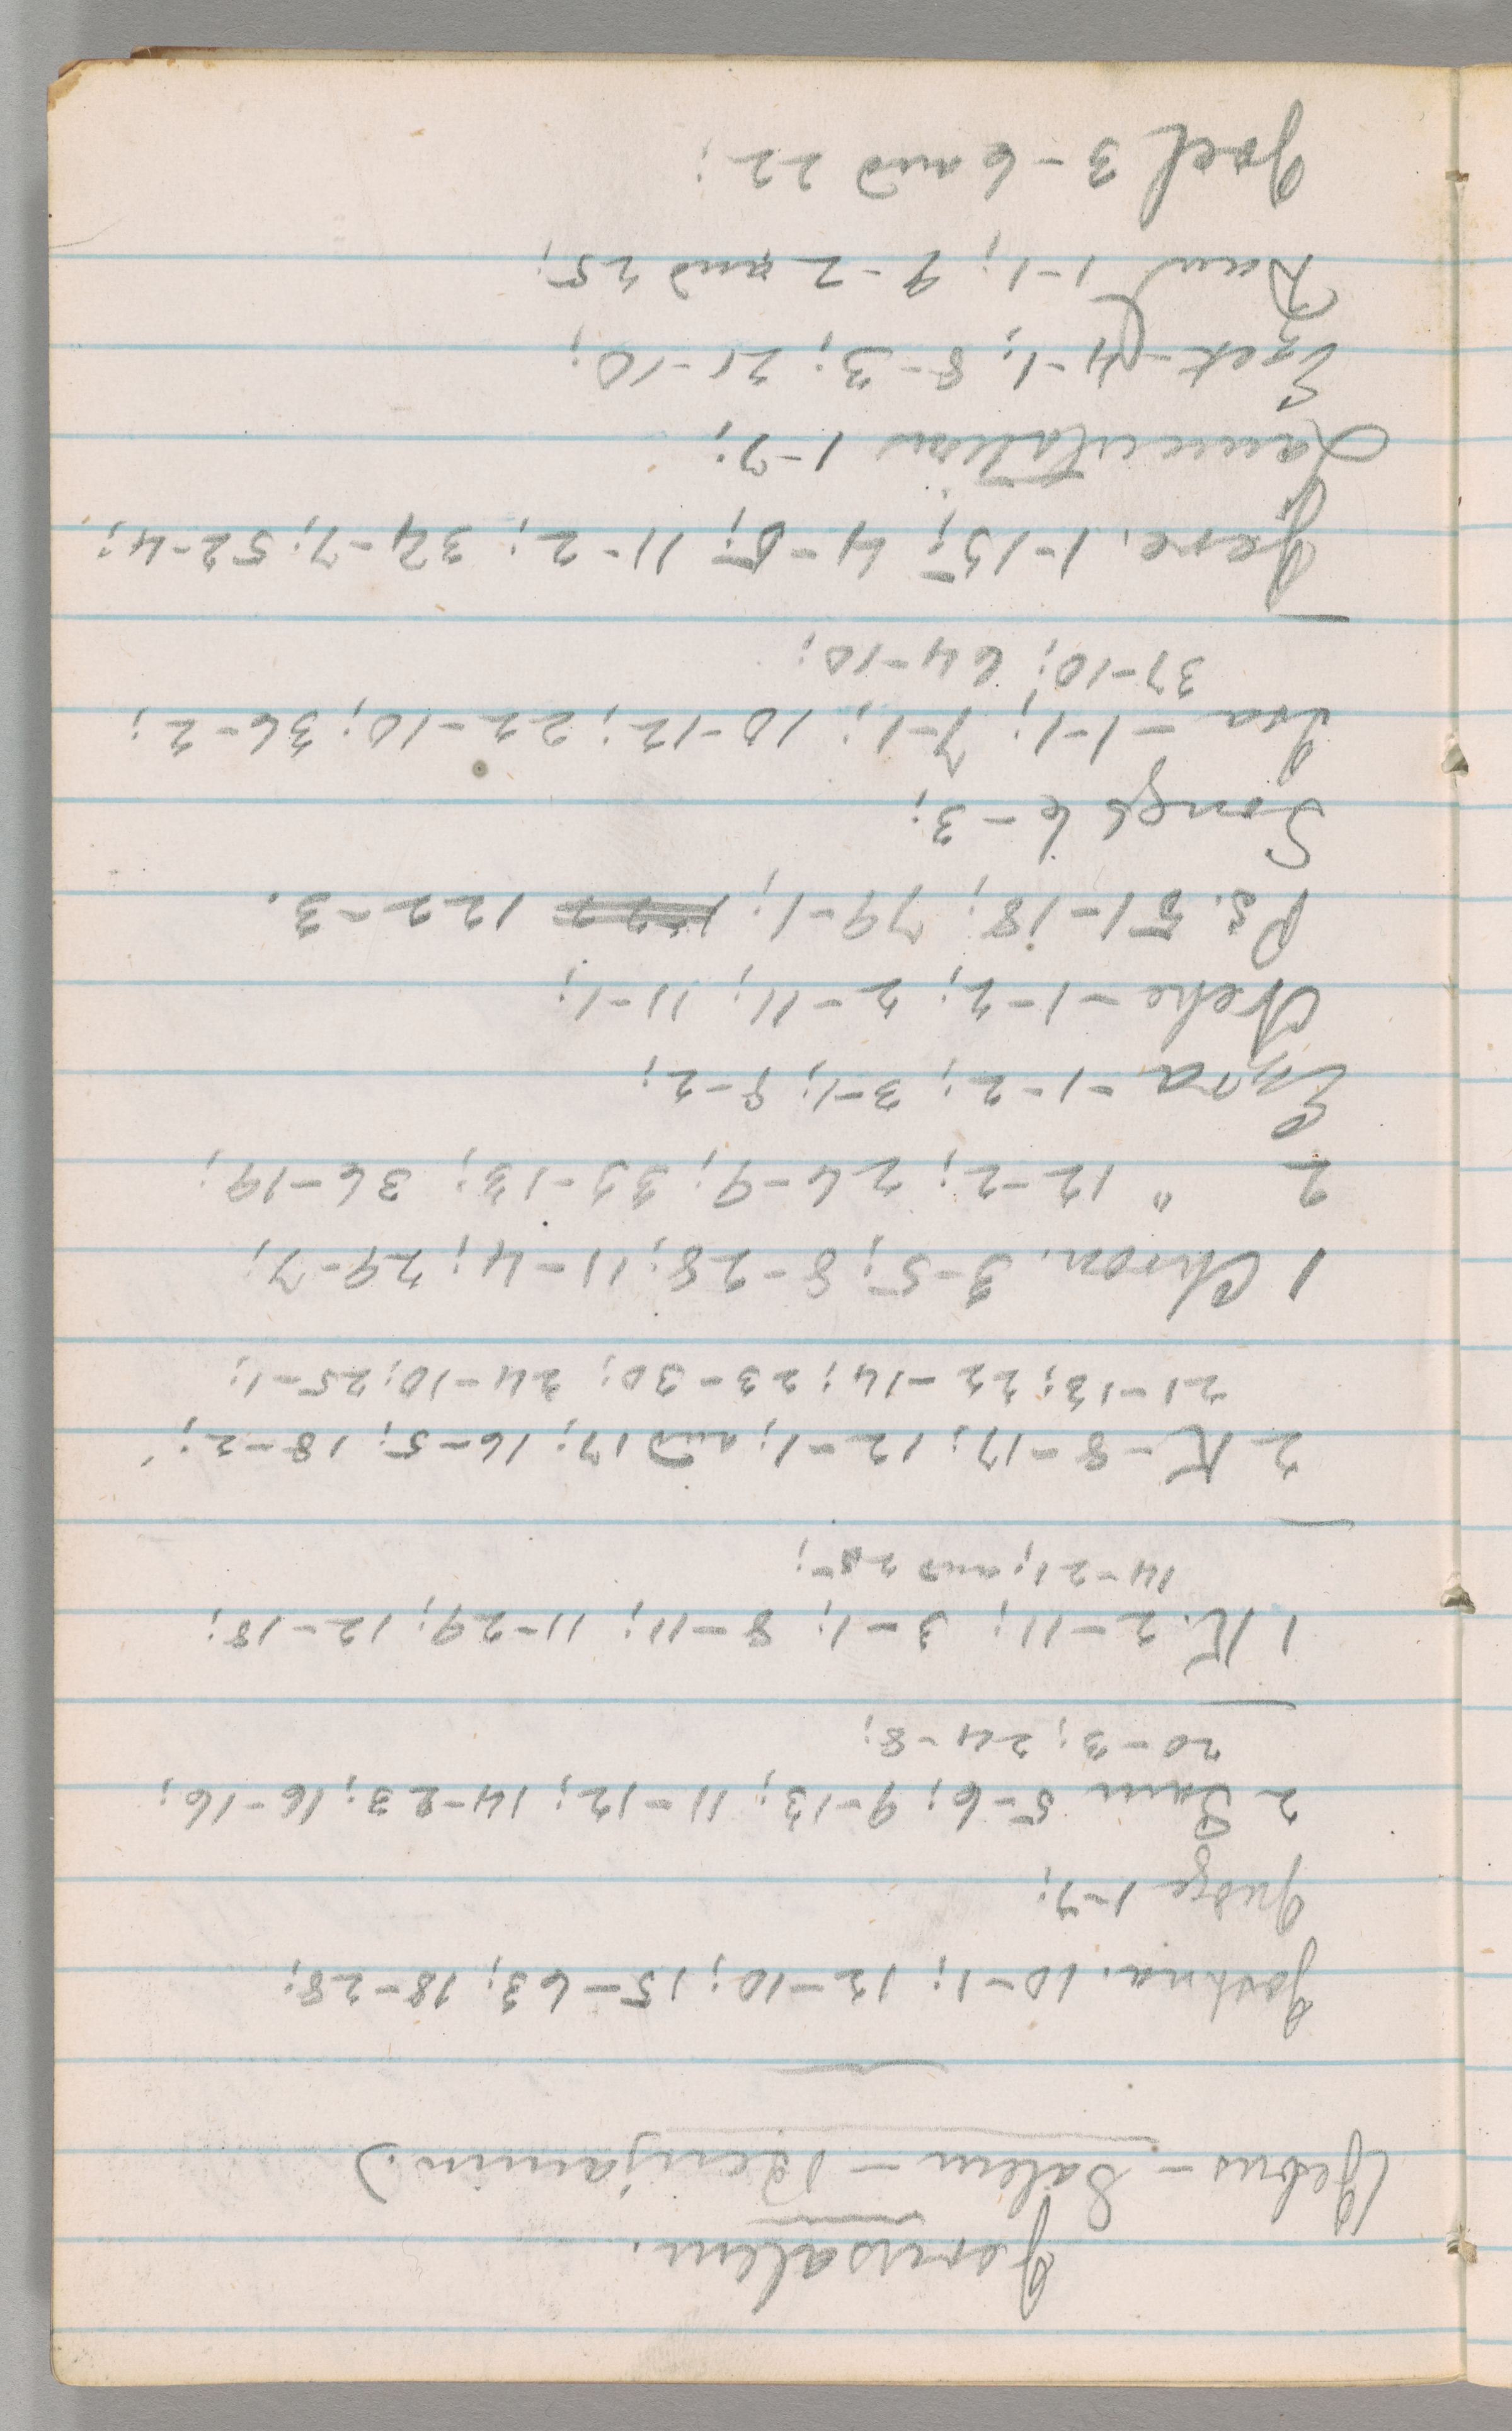 Jerusalem.
(Jebus - Salem - Benjamin.)
Joshua. 10-1; 12-10; 15-63; 18-28;
Judge 1-7;
2 Sam 5-6; 9-13; 11-12; 14-23; 16-16;
20-3; 24-8;
1 K. 2-11; 3-1; 8-11; 11-29; 12-18;
14-21; and 25;
2 K - 8-17; 12-1; and 17; 16-5; 18-2;
21-13; 22-14; 23-30; 24-10; 25-1;
1 Chron. 3-5; 8-28; 11-4; 29-7;
2 " 12-2; 26-9; 33-13; 36-19;
Ezra - 1-2; 3-1; 8-2;
Nehe - 1-2; 2-11; 11-1;
Ps. 51-18; 79-1; 122-3.
Songs 6-3;
Isa - 1-1; 7-1; 10-12; 22-10; 36-2;
37-10; 64-10;
Jere. 1-15; 4-5; 11-2; 34-7; 52-4;
Lamentations 1-7;
Ezek - 4-1; 8-3; 21-10;
Dan 1-1; 9-2 and 25;
Joel 3-6 and 22;